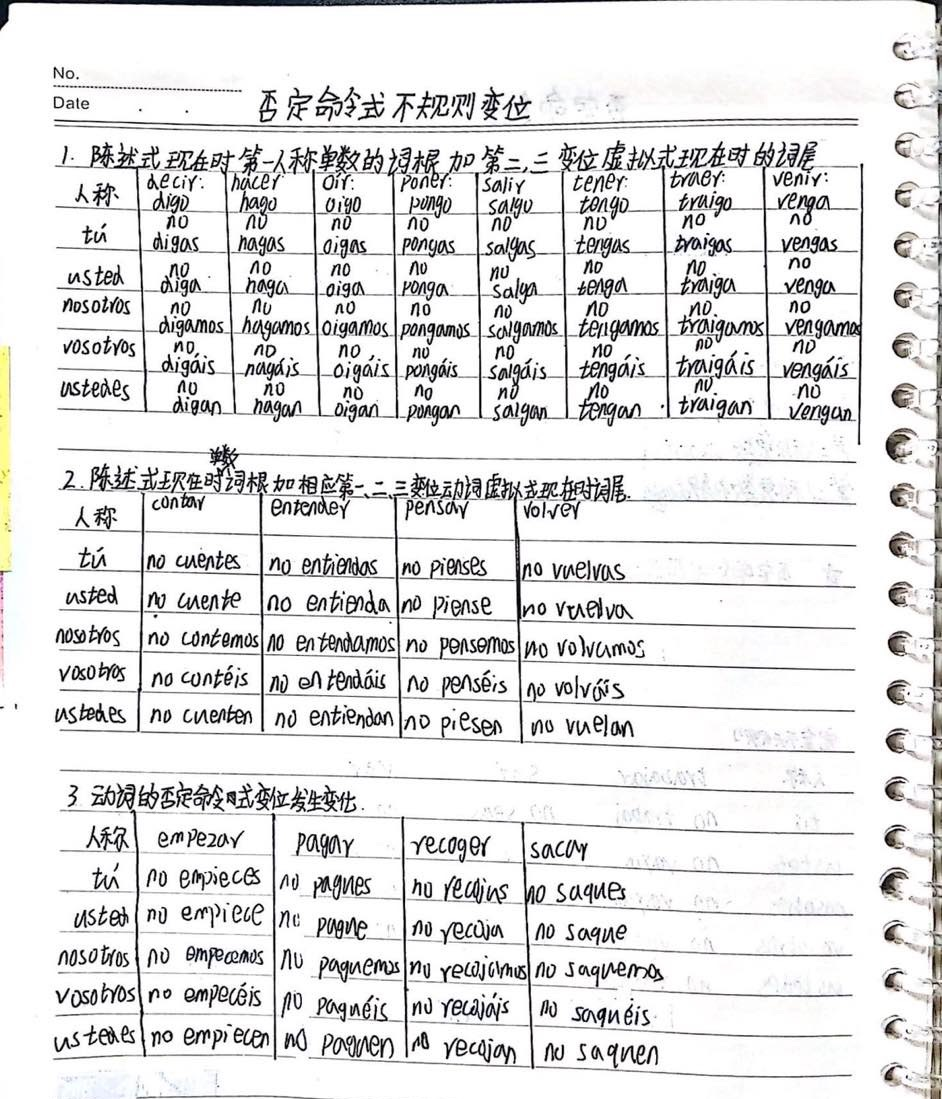 No.
Date
否定命令式不规则变位
1. 陈述式现在时第一人称单数的词根加第二,三变位虚拟式现在时的词尾
人称 decir: hacer oir: poner: salir tener: traer: venir:
digo hago oigo pongo salgo tengo traigo venga
no no no no no no no no
tú digas hagas oigas pongas salgas tengas traigas vengas
no no no no no no no no
usted diga haga oiga ponga salga tenga traiga venga
nosotros no no no no no no no no
digamos hagamos oigamos pongamos salgamos tengamos traigamos vengamos
vosotros no no no no no no no no
digáis hagáis oigáis pongáis salgáis tengáis traigáis vengáis
ustedes no no no no no no no no
digan hagan oigan pongan salgan tengan traigan vengan
单数
2. 陈述式现在时词根加相应第一、二、三变位动词虚拟式现在时词尾.
人称 contar entender pensar volver
tú no cuentes no entiendas no pienses no vuelvas
usted no cuente no entienda no piense no vuelva
nosotros no contemos no entendamos no pensemos no volvamos
vosotros no contéis no entendáis no penséis no volváis
ustedes no cuenten no entiendan no piesen no vuelan
3 动词的否定命令式变位发生变化.
人称 empezar pagar recoger sacar
tú no empieces no pagues no recojas no saques
usted no empiece no pague no recoja no saque
nosotros no empecemos no paguemos no recojamos no saquemos
vosotros no empecéis no paguéis no recojáis no saquéis
ustedes no empiecen no paguen no recojan no saquen